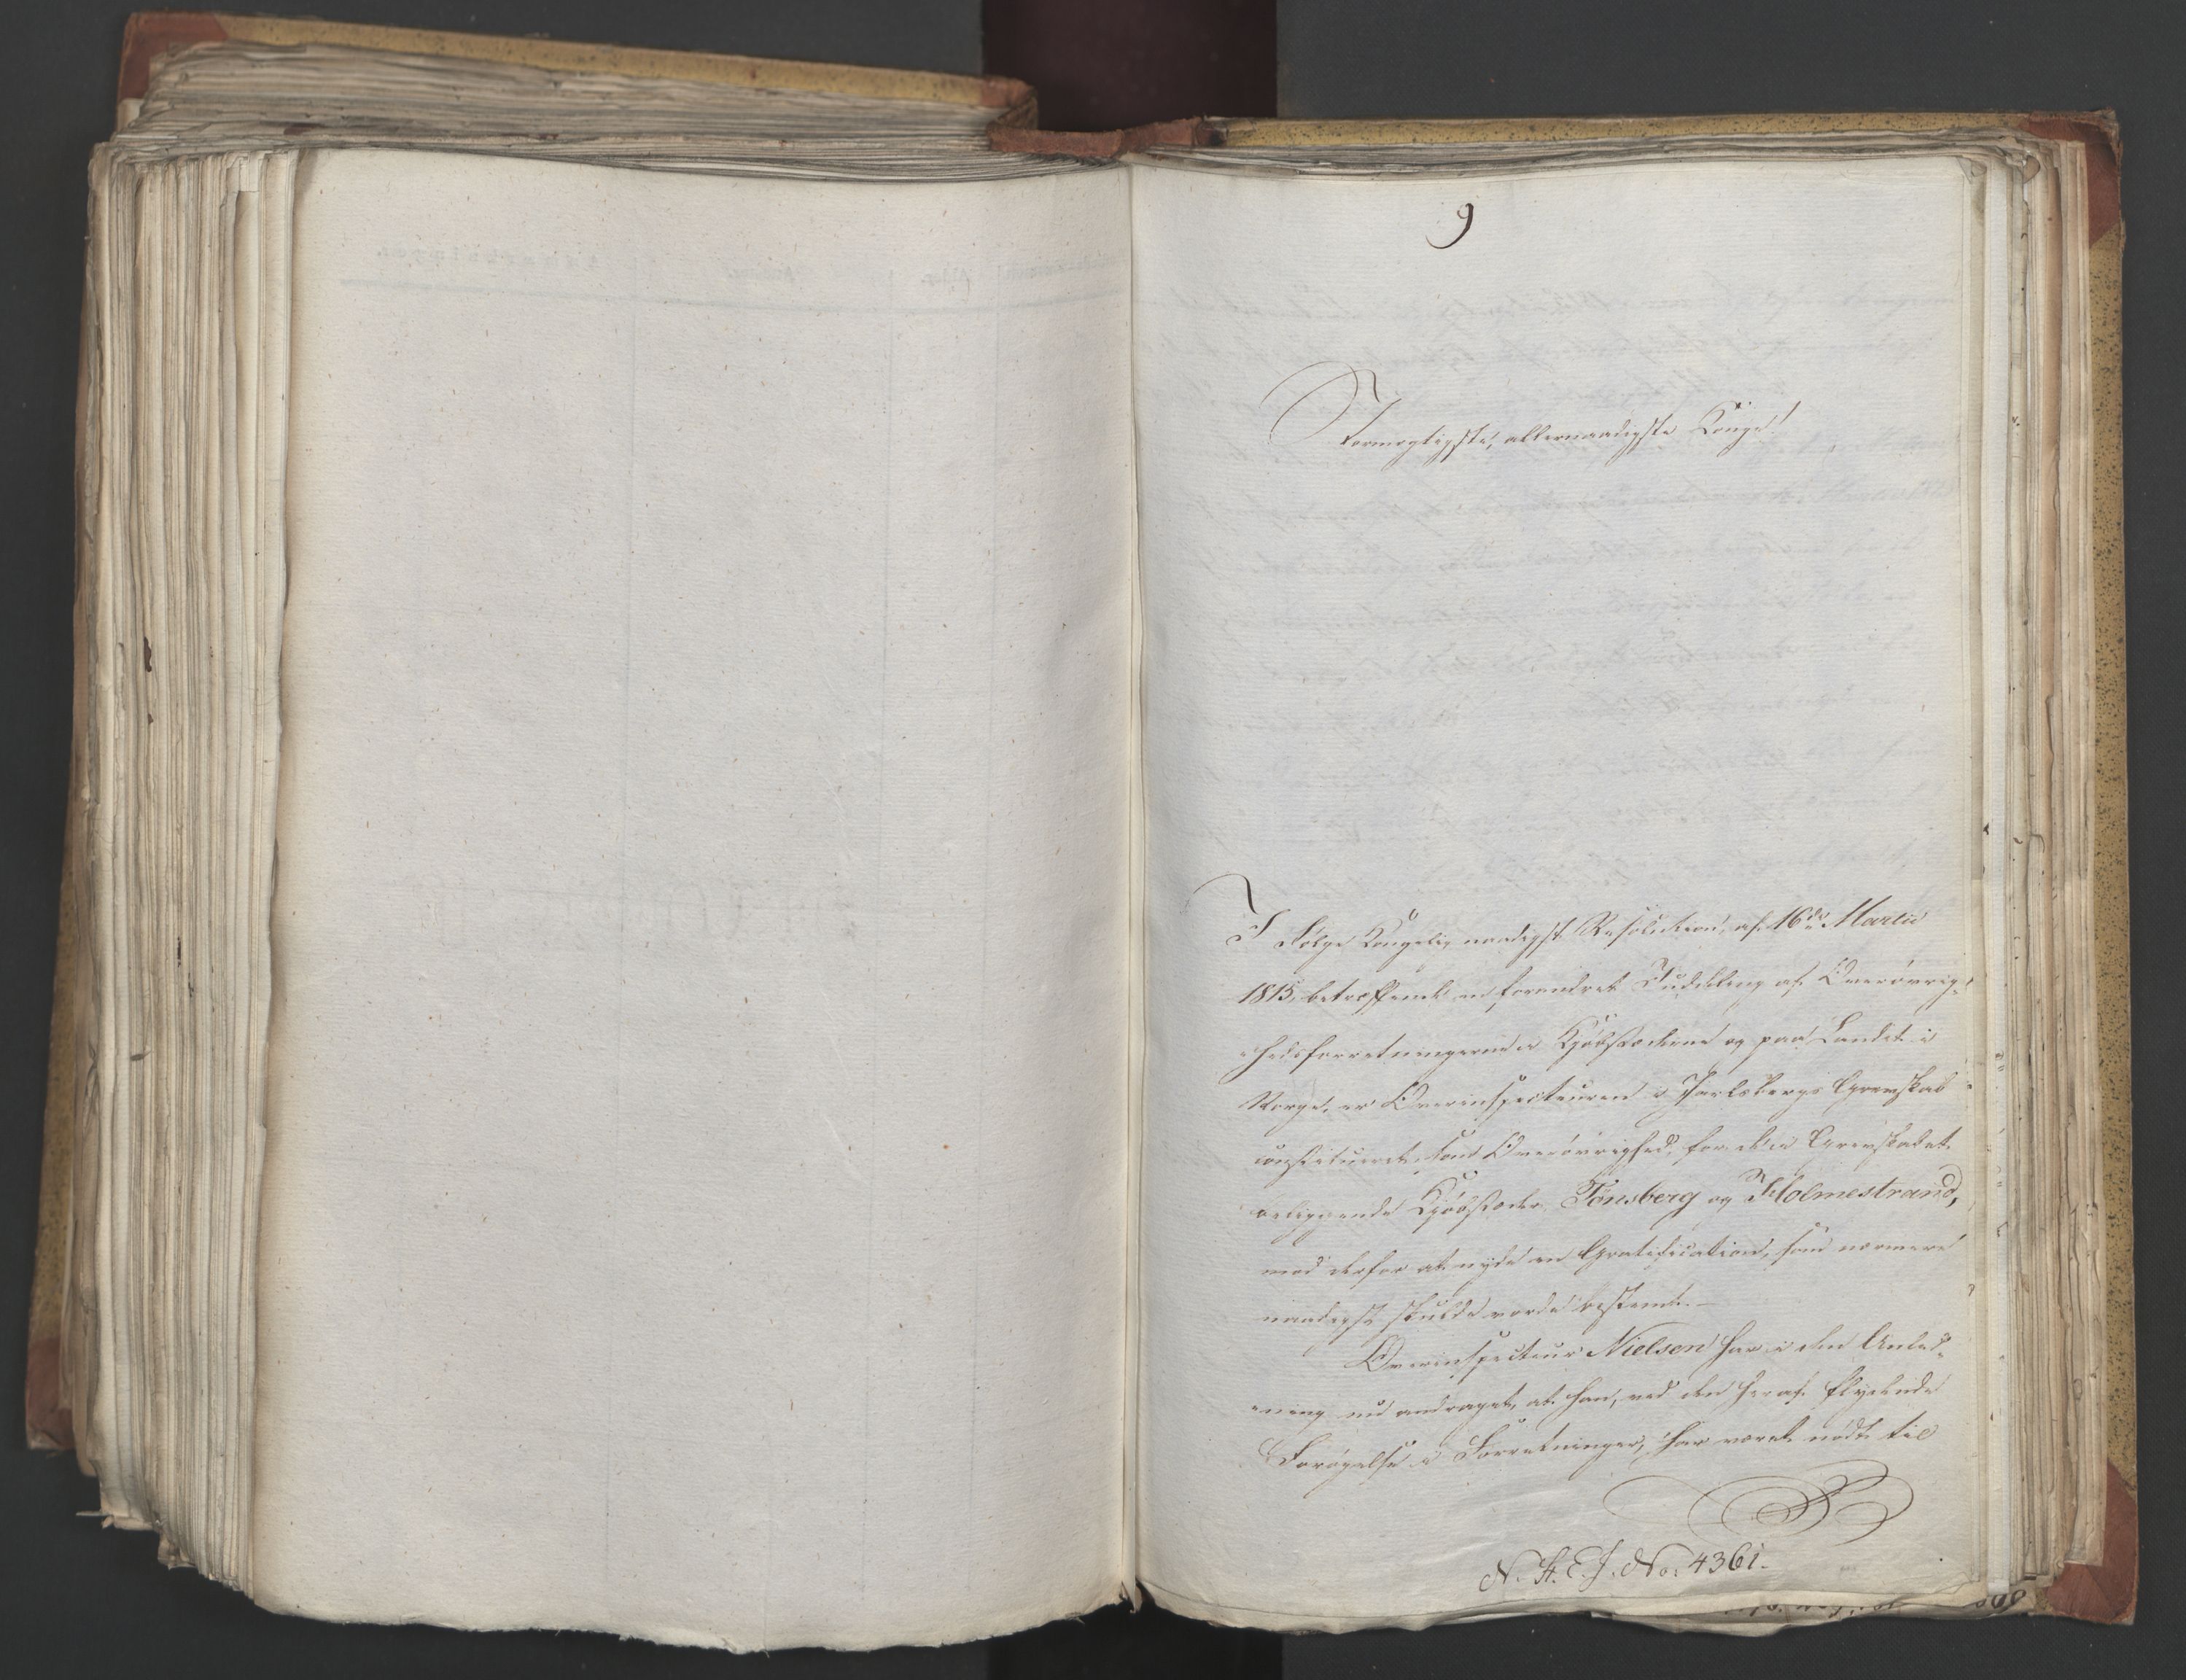 9
Stormægtigste, allernaadigste Konge!
I Følge Kongelig naadigst Resolution af 16de Martii
1815, betræffende en forandret Inddeling af Overøvrig-
-hedsforretningerne i Kjøbstæderne og paa Landet i
Norge, er Overinspecteuren i Jarlsbergs Grevskab
constitueret som Overøvrighed for de i Grevskabet
beliggende Kjøbstæder Tønsberg og Holmestrand,
mod derfor at nyde en Gratification, som nærmere
naadigst skulde vorde bestemt. —
Overinspecteur Nielsen har i den Anled-
-ning nu andraget, at han, ved den heraf flydende
Forøgelse i Forretninger, har været nødt til
N. H. E. J. No. 4361.